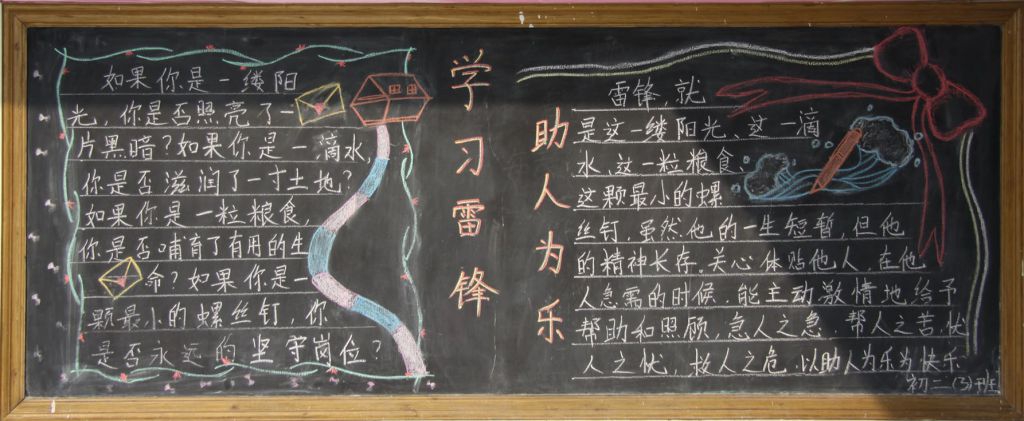 如果你是一缕阳
光,你是否照亮了一
片黑暗?如果你是一滴水,
你是否滋润了一寸土地?
如果你是一粒粮食,
你是否哺育了有用的生
命?如果你是一
颗最小的螺丝钉,你
是否永远的坚守岗位?
学习雷锋
助人为乐
雷锋,就
是这一缕阳光、这一滴
水、这一粒粮食、
这颗最小的螺
丝钉,虽然他的一生短暂,但他
的精神长存。关心体贴他人,在他
人急需的时候,能主动激情地给予
帮助和照顾,急人之急,帮人之苦,忧
人之忧,救人之危,以助人为乐为快乐
初二(3)班